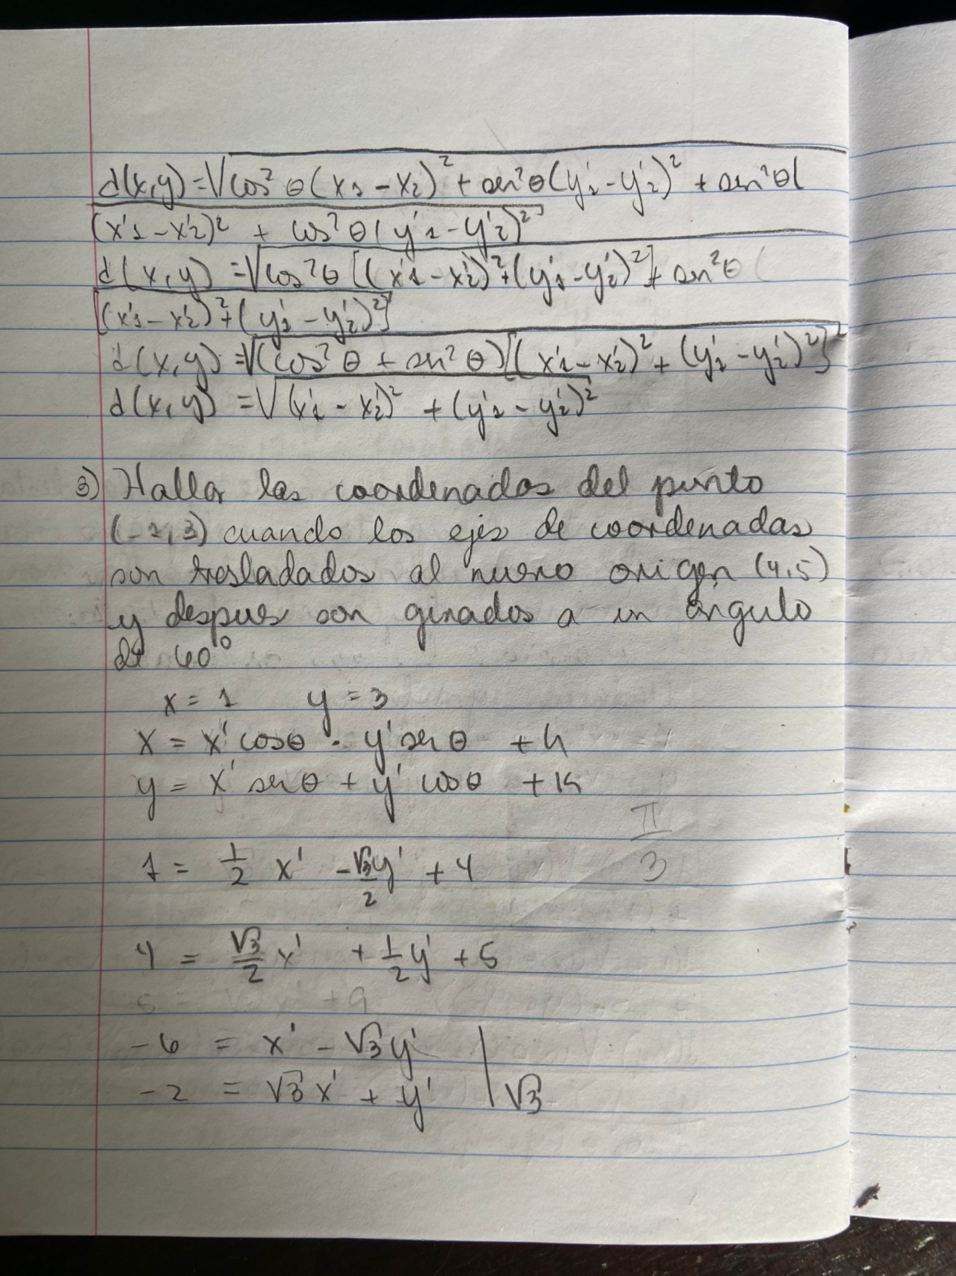 d(x,y)=√cos²θ(x₁-x₂)²+sen²θ(y'₁-y'₂)²+sen²θ(
(x'₁-x'₂)² + cos²θ(y'₁-y'₂)²
d(x,y)=√cos²θ[(x'₁-x'₂)²+(y'₁-y'₂)²]+sen²θ(
[(x'₁-x'₂)²+(y'₁-y'₂)²]
d(x,y)=√(cos²θ+sen²θ)[(x'₁-x'₂)²+(y'₁-y'₂)²]
d(x,y)=√(x'₁-x'₂)²+(y'₁-y'₂)²
3) Hallar las coordenadas del punto
(-2,3) cuando los ejes de coordenadas
son trasladados al nuevo origen (4,5)
y despues son girados a un ángulo
de 60°
x=1 y=3
x = x' cosθ - y' senθ + h
y = x' senθ + y' cosθ + k
π/3
1 = 1/2 x' - √3/2 y' + 4
4 = √3/2 x' + 1/2 y' + 5
-6 = x' - √3y'
-2 = √3x' + y' | √3